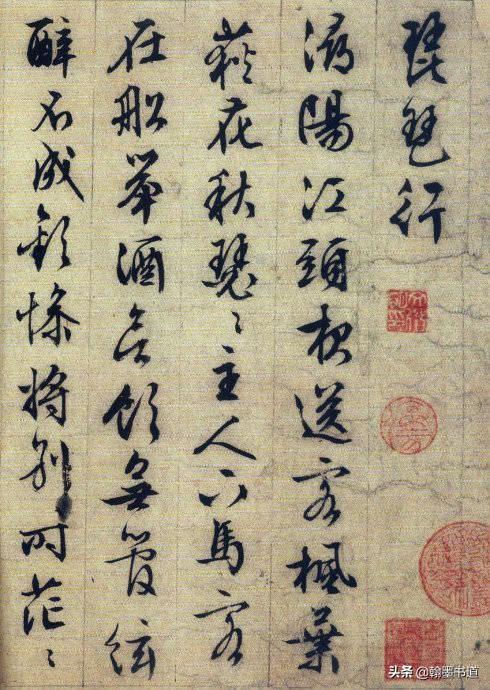 琵琶行
潯陽江頭夜送客楓葉
荻花秋瑟〻主人下馬客
在船舉酒欲飲無管絃
醉不成歡慘將別時茫〻
头条 @翰墨书道